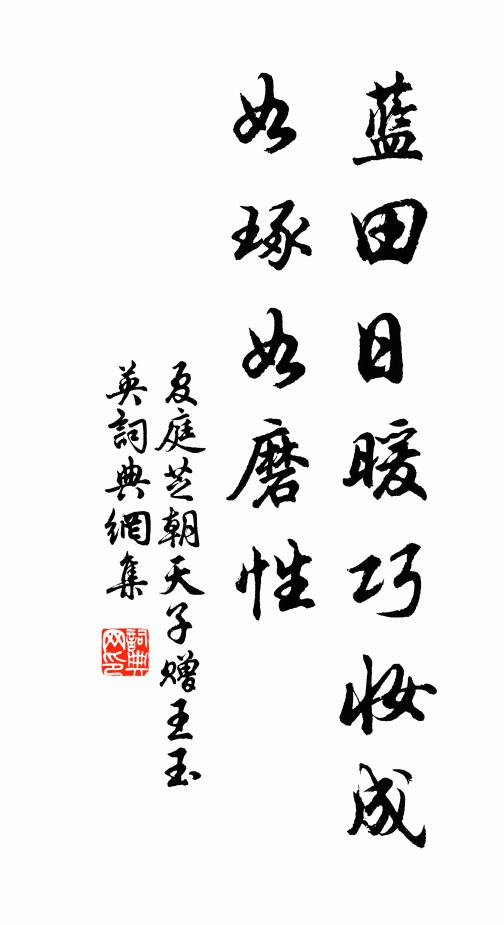 藍田日暖巧妝成
如琢如磨性
夏庭芝朝天子贈王玉
英詞典網集
詞典网印